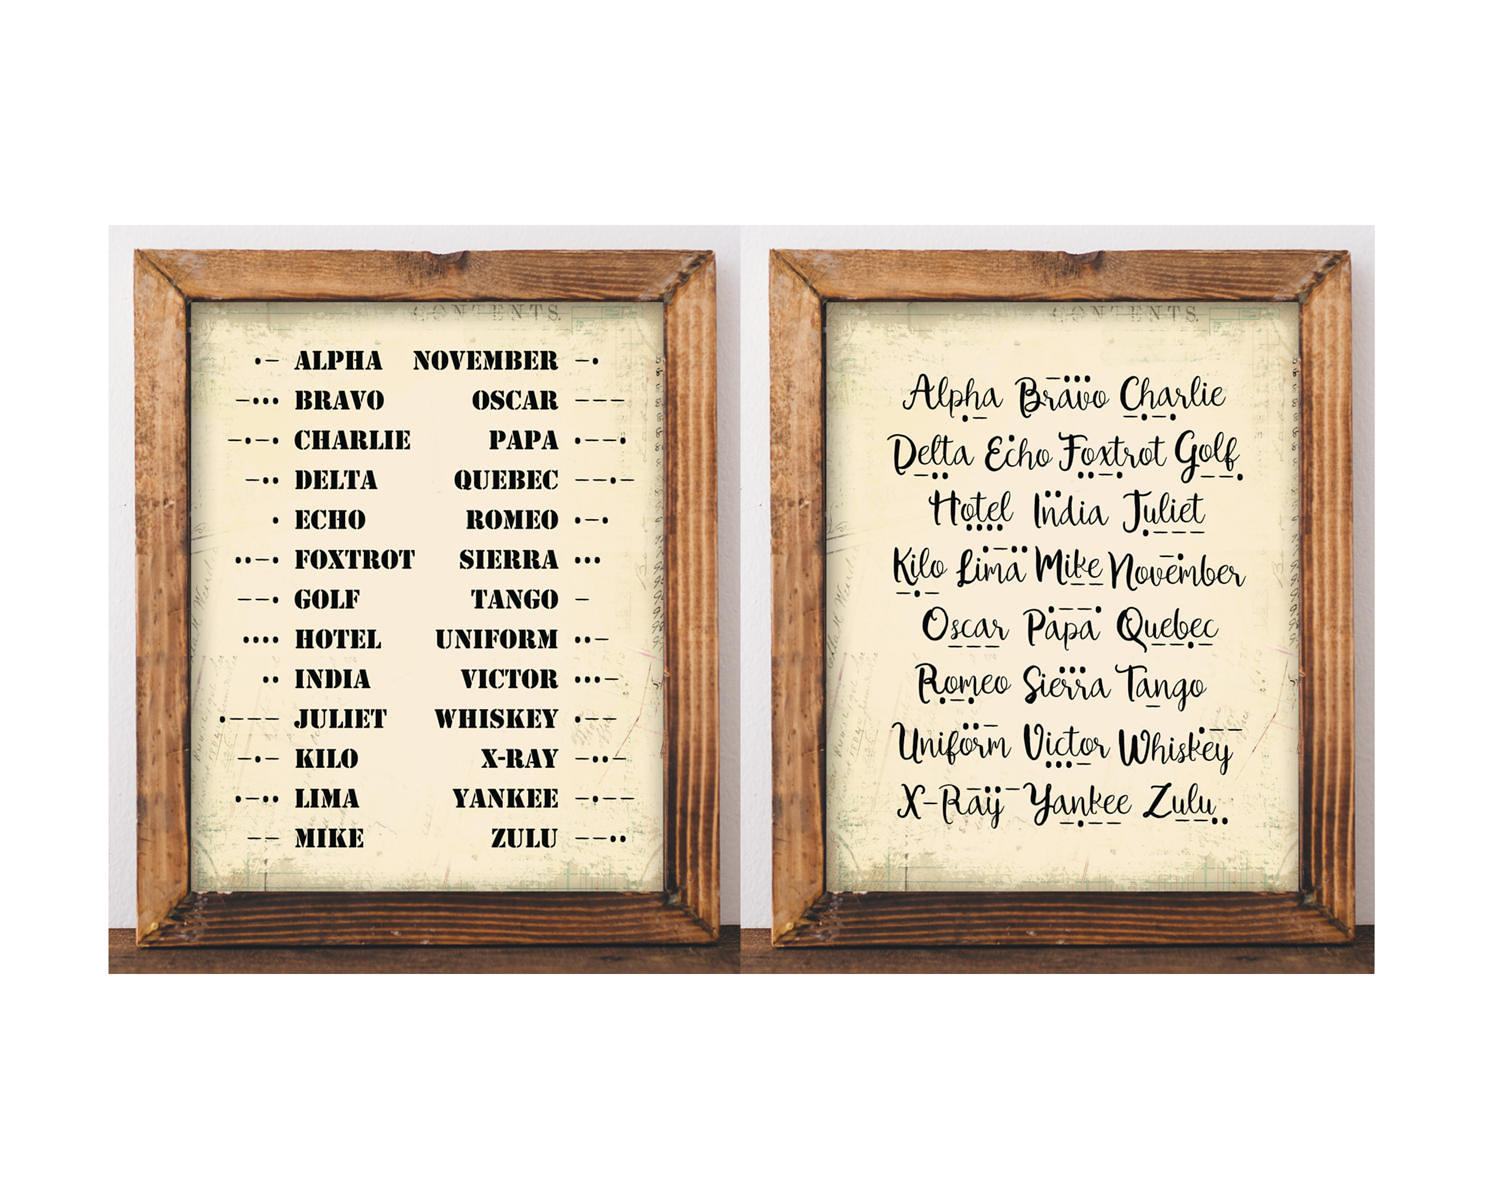 CONTENTS.
·– ALPHA NOVEMBER –·
–··· BRAVO OSCAR –––
–·–· CHARLIE PAPA ·––·
–·· DELTA QUEBEC ––·–
· ECHO ROMEO ·–·
··–· FOXTROT SIERRA ···
––· GOLF TANGO –
···· HOTEL UNIFORM ··–
·· INDIA VICTOR ···–
·––– JULIET WHISKEY ·––
–·– KILO X-RAY –··–
·–·· LIMA YANKEE –·––
–– MIKE ZULU ––··
CONTENTS.
Alpha Bravo Charlie
Delta Echo Foxtrot Golf
Hotel India Juliet
Kilo Lima Mike November
Oscar Papa Quebec
Romeo Sierra Tango
Uniform Victor Whiskey
X-Ray Yankee Zulu